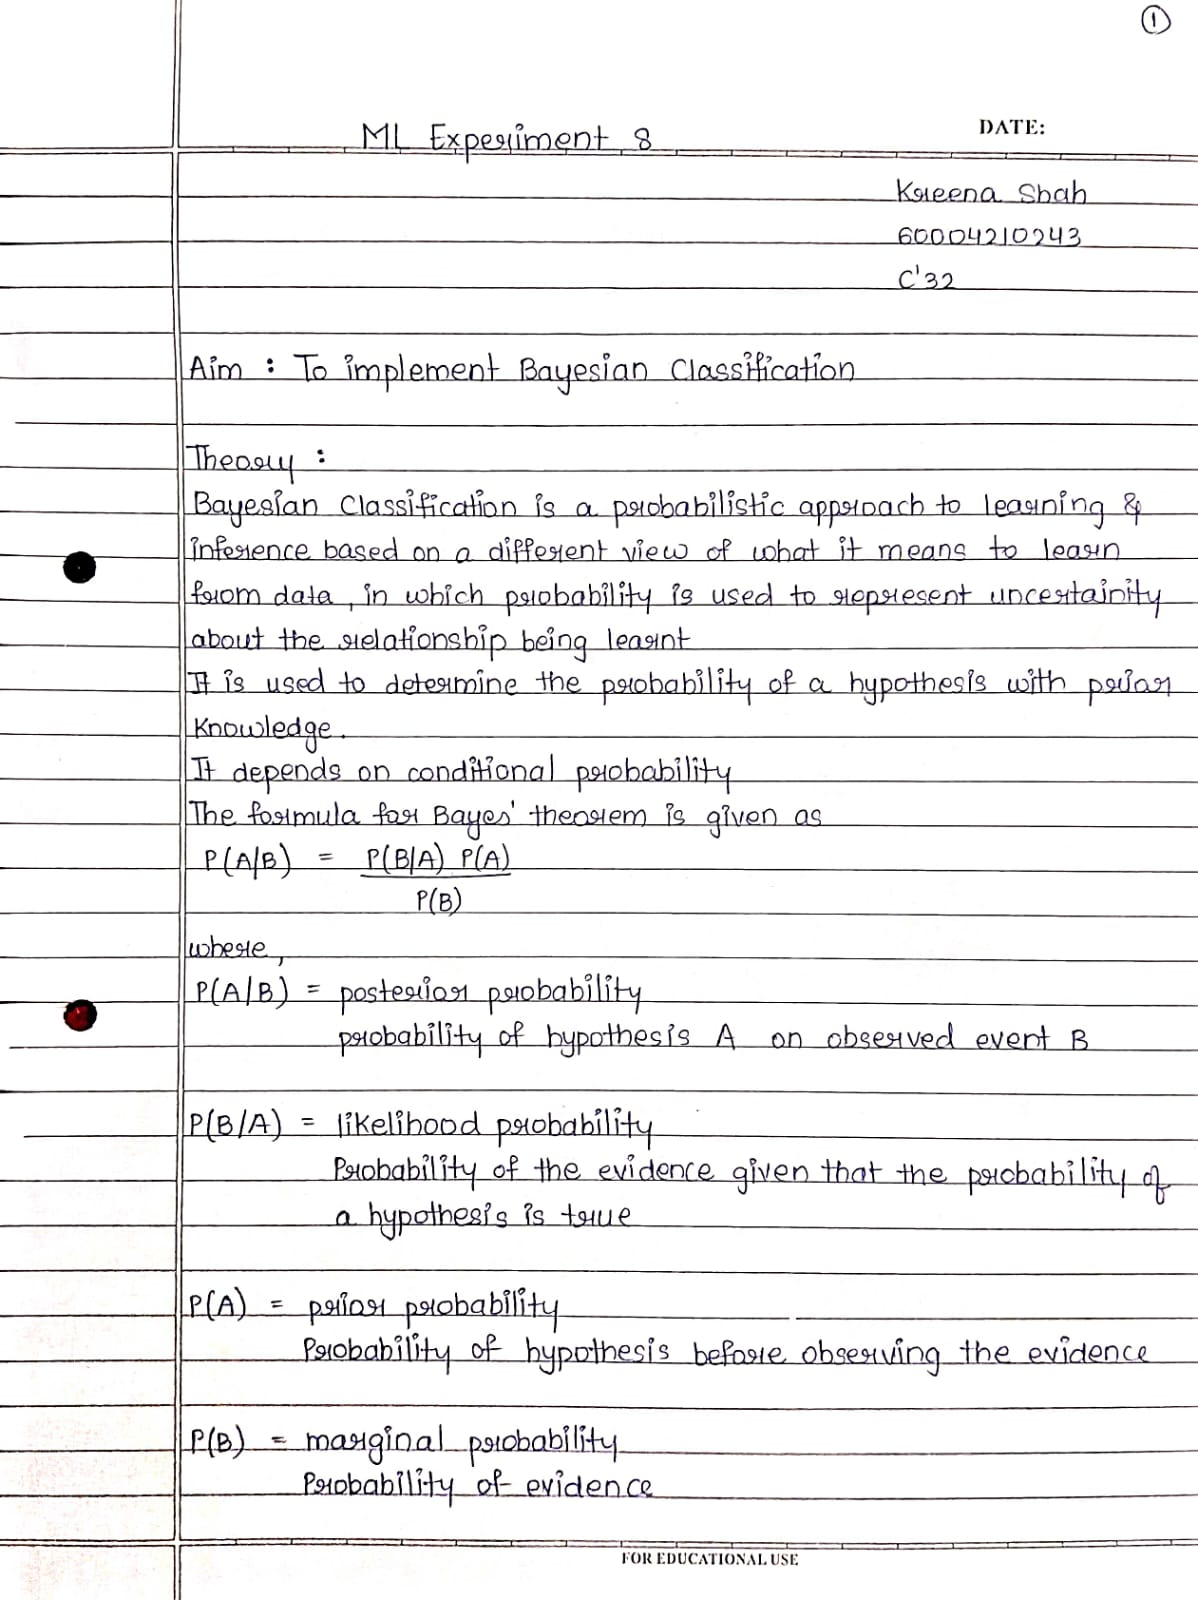 1
ML Experiment 8
DATE:
Kreena Shah
60004210243
C'32
Aim : To implement Bayesian Classification
Theory :
Bayesian Classification is a probabilistic approach to learning &
inference based on a different view of what it means to learn
from data, in which probability is used to represent uncertainity
about the relationship being learnt
It is used to determine the probability of a hypothesis with prior
Knowledge.
It depends on conditional probability
The formula for Bayes' theorem is given as
P(A/B) = P(B/A) P(A)
P(B)
where,
P(A/B) = posterior probability
probability of hypothesis A on observed event B
P(B/A) = likelihood probability
Probability of the evidence given that the probability of
a hypothesis is true
P(A) = prior probability
Probability of hypothesis before observing the evidence
P(B) = marginal probability
Probability of evidence
FOR EDUCATIONAL USE